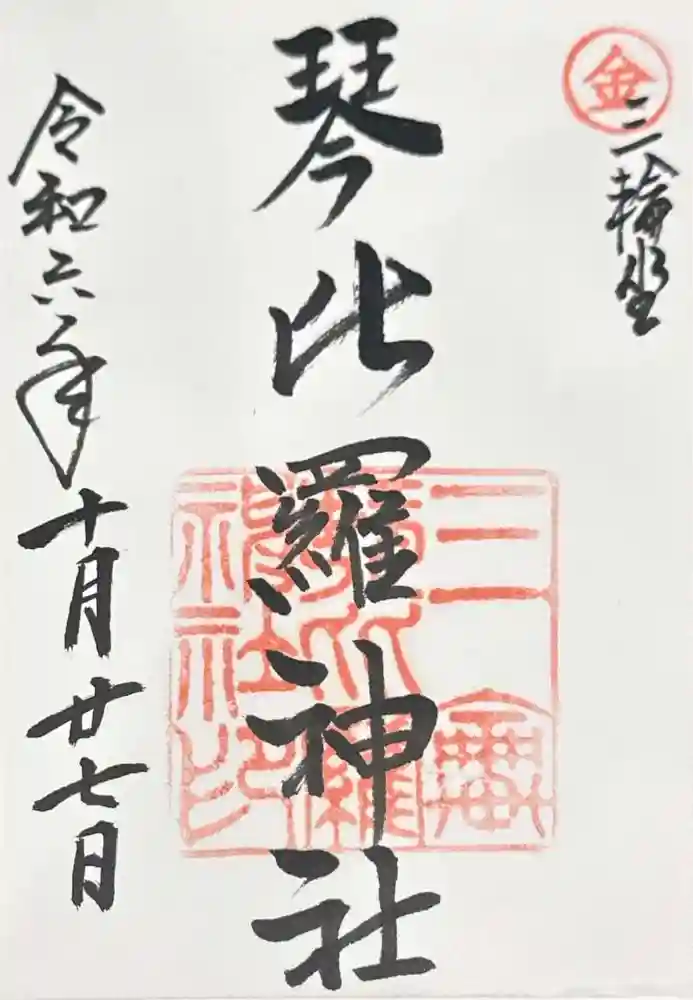 金
三輪坐
琴比羅神社
令和六年十月廿七日